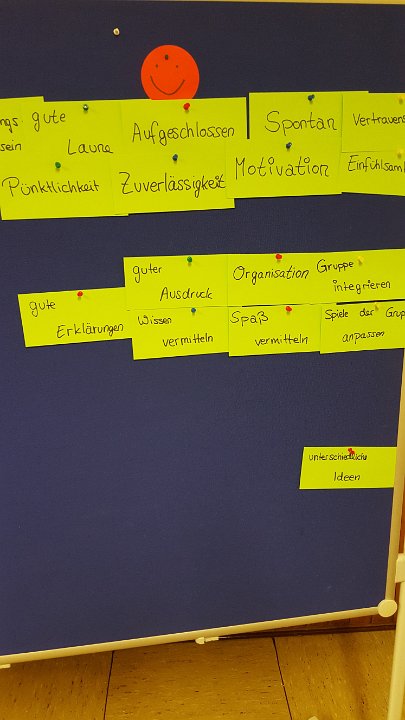 gute
Laune
Aufgeschlossen
Spontan
Pünktlichkeit
Zuverlässigkeit
Motivation
guter
Ausdruck
Organisation
Gruppe
integrieren
gute
Erklärungen
Wissen
vermitteln
Spaß
vermitteln
Spiele der
anpassen
unterschiedliche
Ideen